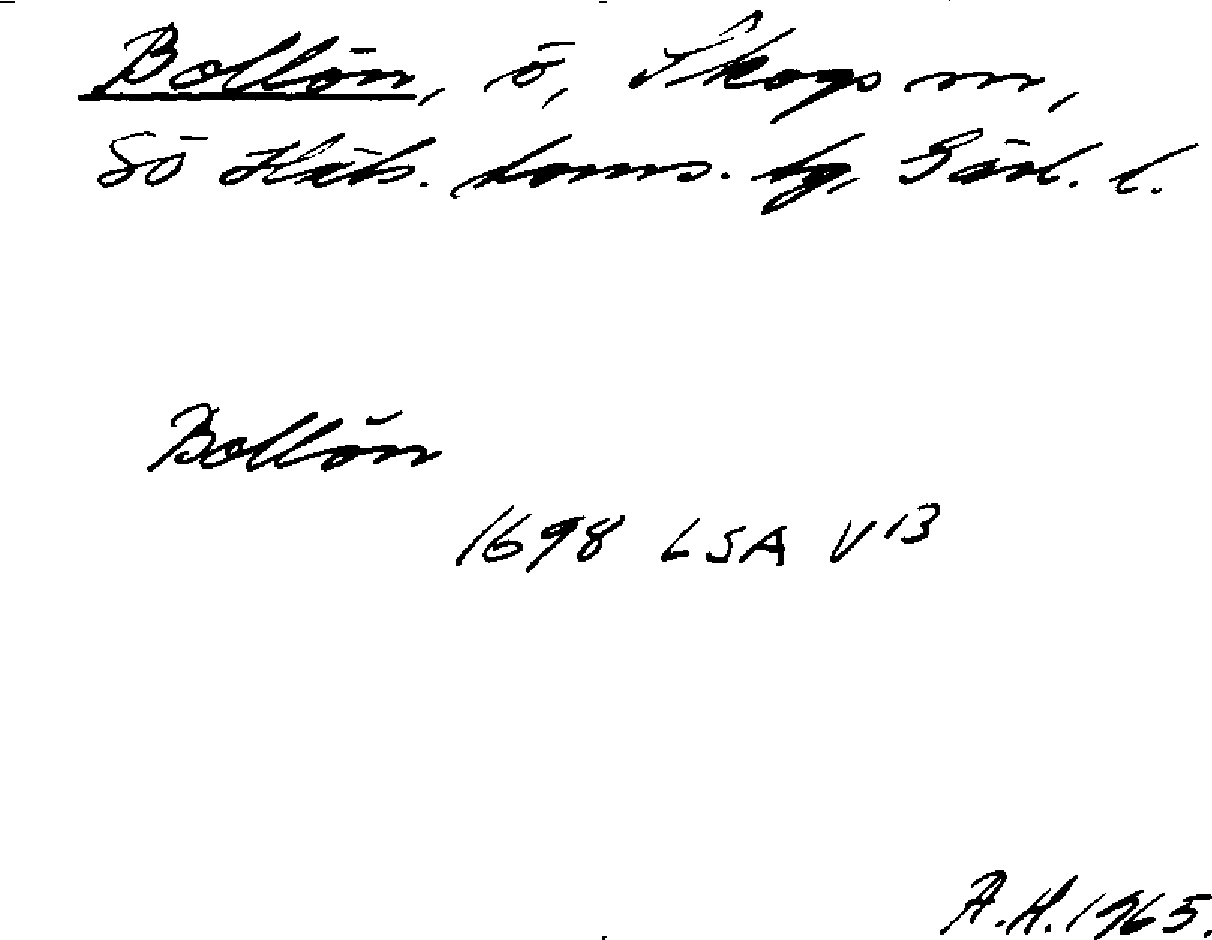 Bollön, ö, Skogs sn,
Sö Häls. doms. tg, Gävl. l.
Bollön
1698 LSA V 13
A.H. 1965.